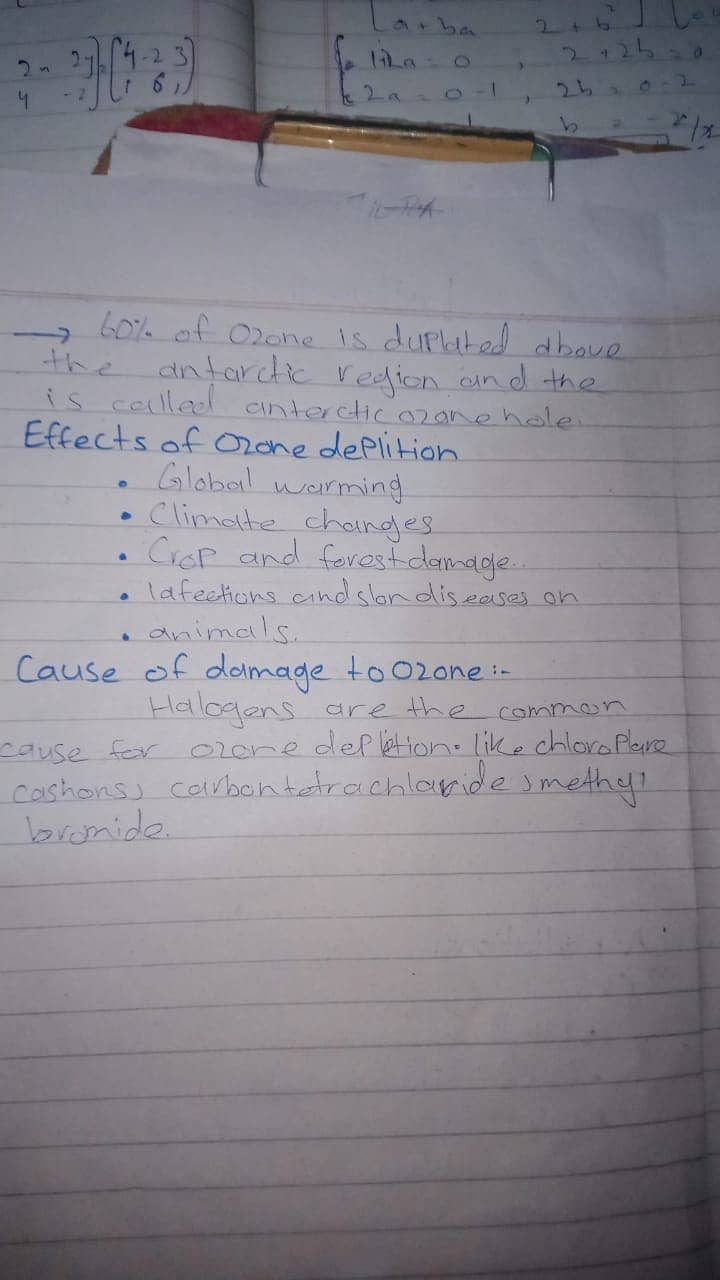 [a + ba 2 + b²]
1+2a = 0 , 2 + 2b = 0
2a = 0 - 1 , 2b = 0 - 2
b = -2/2
4 -2 3
4 -2 1 6
→ 60% of Ozone is duplated above
the antarctic region and the
is called anterctic ozone hole.
Effects of Ozone deplition
• Global warming
• Climate changes
• Crop and forest damage..
• Iafections and slon diseases on
• animals.
Cause of damage to Ozone :-
Halogens are the common
cause for ozone depletion. like chloroplero
cashons, carbon tetrachlaride, methyl
bromide.